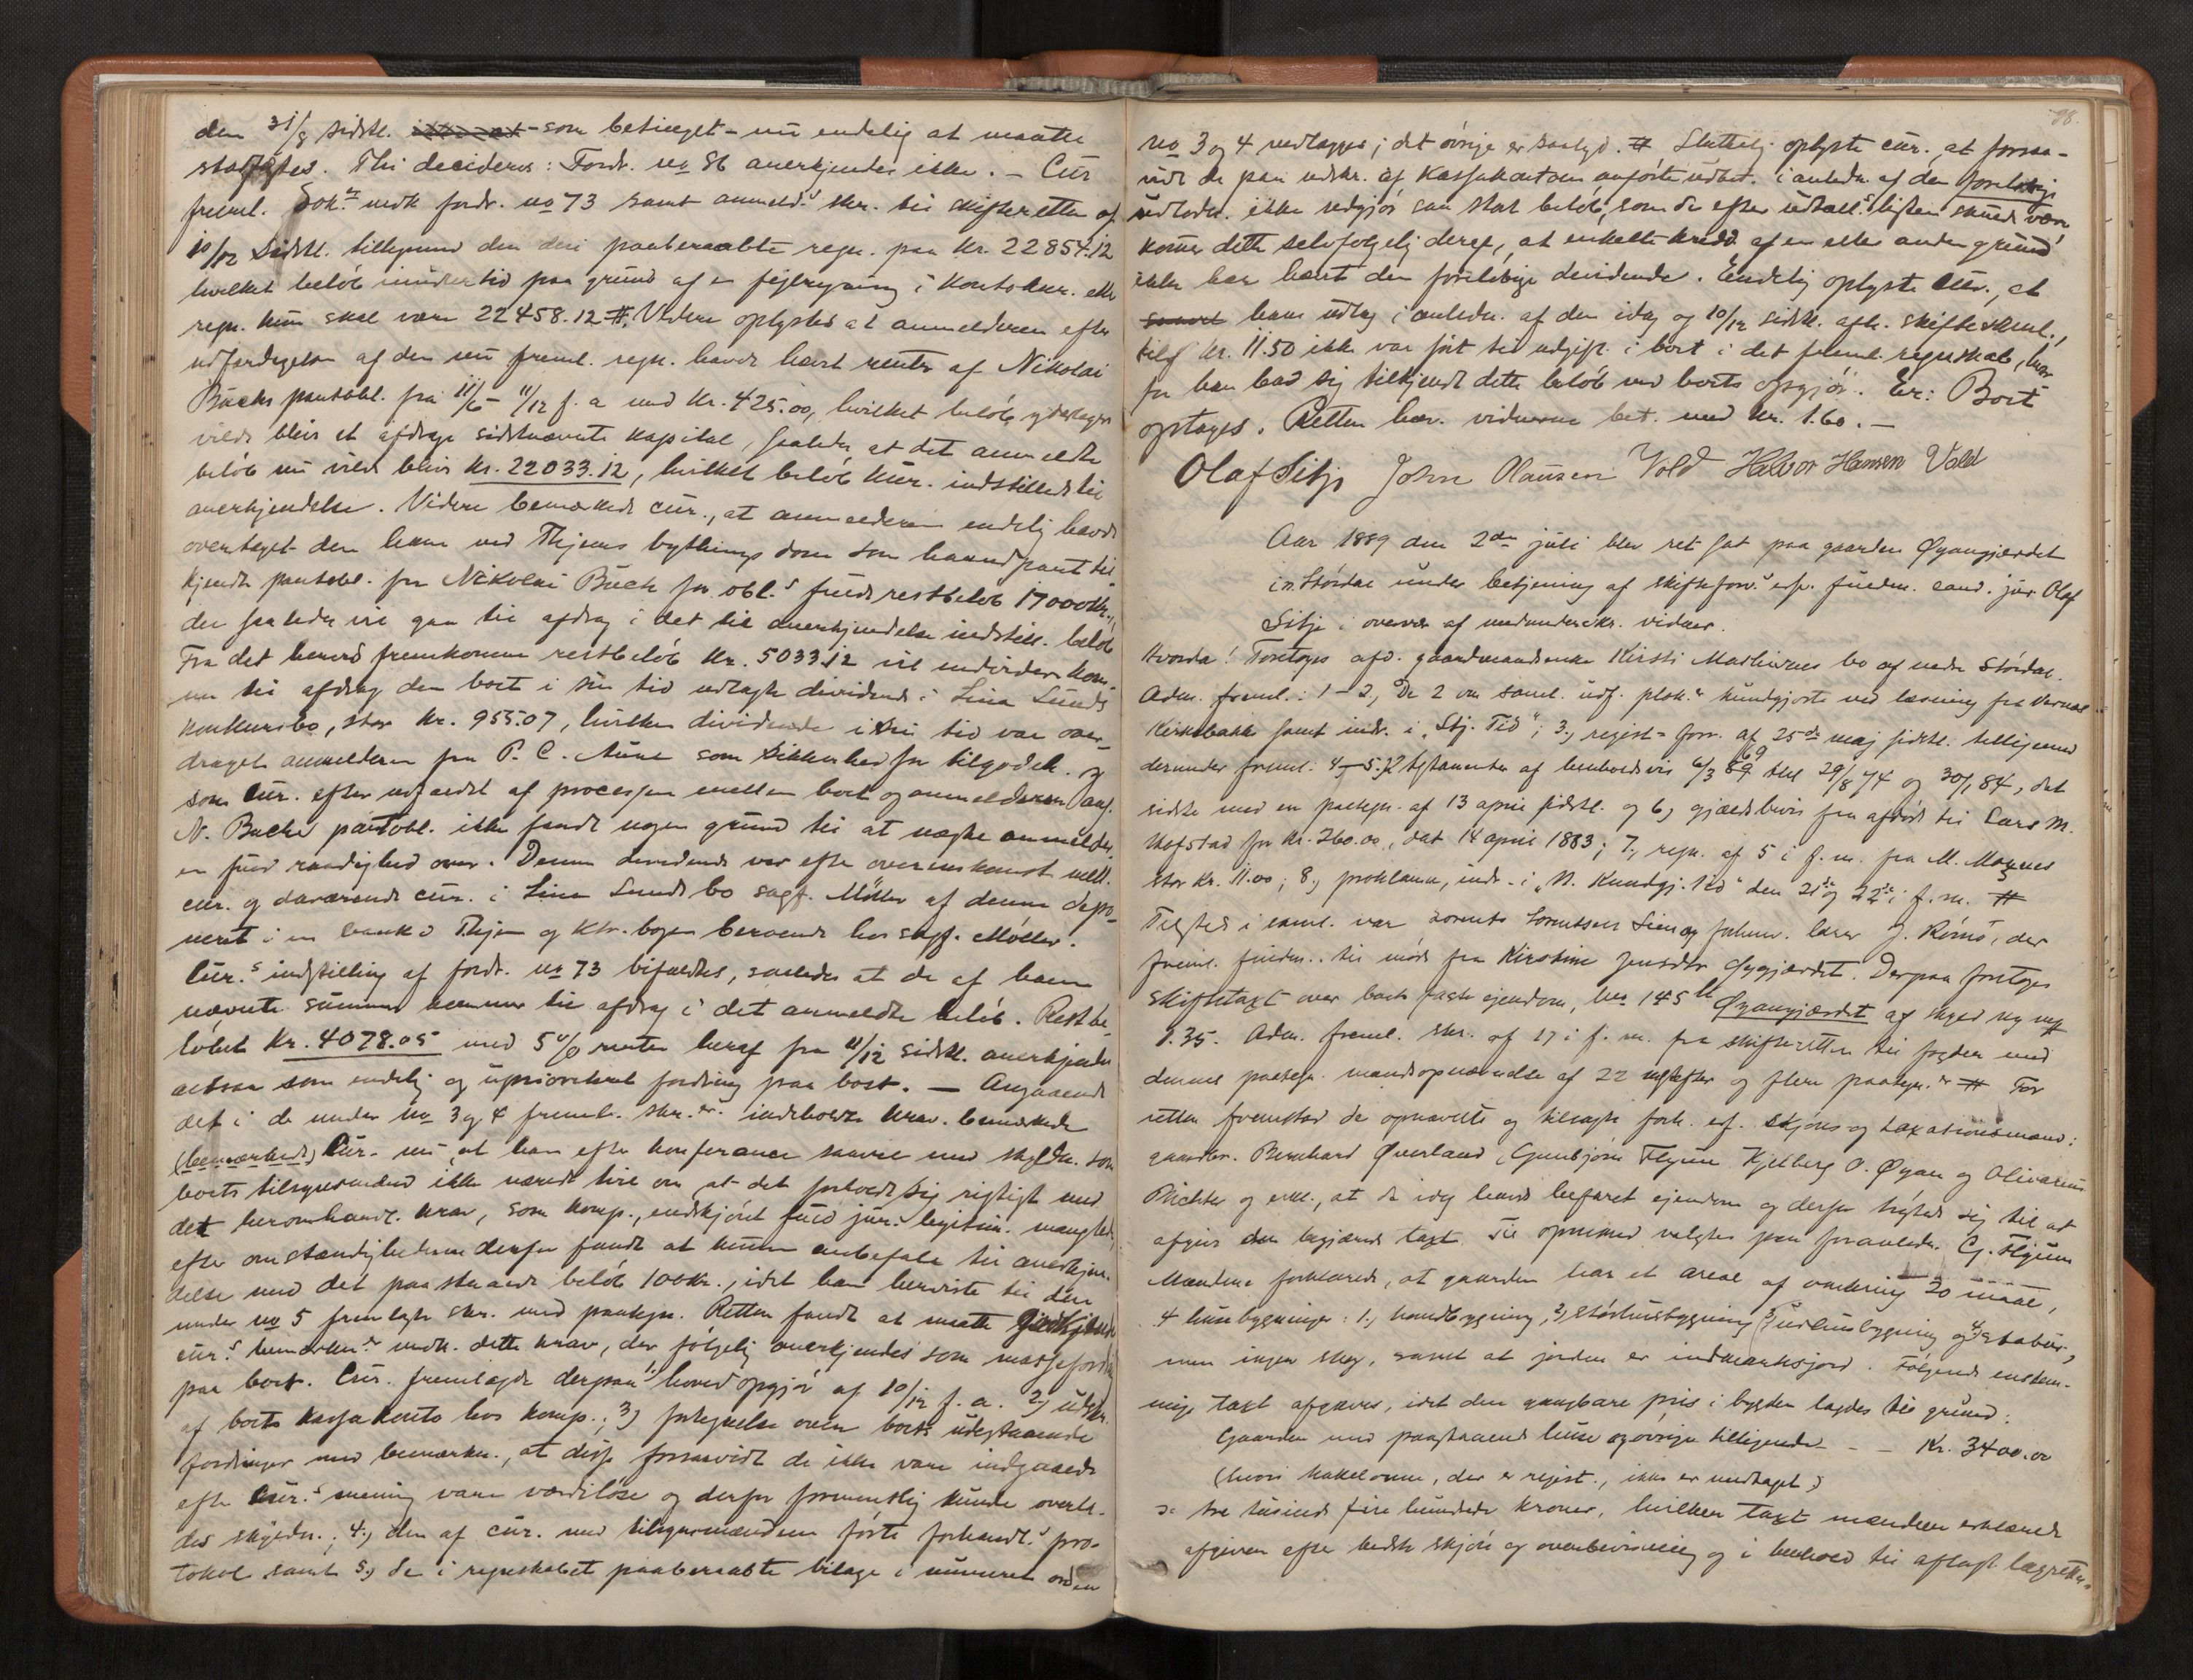 den 31/8 sidstl. - som betinget - nu endelig at maatte
stadfæstes. Thi decideres: Fordr. no 86 anerkjendes ikke. - Cur
freml. Dok.er vedk. fordr. no 73 samt anmeld.s skr. til skifteretten af
10/12 sidstl. tilligemed den deri paaberaabte regn. paa Kr. 22854.12
hvilket beløb imidlertid paa grund af en fejlregning i Kontokur. eller
regn. kun skal være 22458.12 #. Videre oplystes at anmelderen efter
udfærdigelsen af den nu freml. regn. havde hævet renter af Nikolai
Buchs pantobl. fra 11/6 - 11/12 f. a med Kr. 425.00, hvilket beløb
vilde blive at afdrage sidstnævnte kapital, saaledes at det anmeldte
beløb nu vilde blive Kr. 22033.12, hvilket beløb kur. indstillede til
anerkjendelse. Videre bemærkede cur., at anmelderen endelig havde
overtaget den ham ved Thjems bythings dom som haandpant til
kjendte pantobl. fra Nikolai Buch for obl.s fulde restbeløb 17000 Kr.,
der saaledes vil gaa til afdrag i det til anerkjendelse indstill. beløb
Fra det herved fremkomne restbeløb Kr. 5033.12 vil endvidere kom-
me til afdrag den boet i sin tid udlagte dividende i Lina Lunds
konkursbo, stor Kr. 955.07, hvilken dividende i sin tid var over-
draget anmelderen fra P. C. Aune som sikkerhed for tilgodeh. og
som Cur. efter udfaldet af processen mellem boet og anmelderen ang.
N. Buchs pantobl. ikke fandt nogen grund til at negte anmelder-
en fuld raadighed over. Denne dividende var efter overenskomst mell.
cur. og daværende cur. i Lina Lunds bo sagf. Møller af denne depo-
neret i en bank i Thjem og Ktr.bogen beroende hos sagf. Møller.
Cur.s indstilling af fordr. no 73 bifaldtes, saaledes at de af ham
nævnte summer kommer til afdrag i det anmeldte beløb. Restbe-
løbet Kr. 4078.05 med 5% renter heraf fra 11/12 sidstl. anerkjendes
altsaa som endelig og uprioriteret fordring paa boet. — Angaaende
det i de under no 3 og 4 freml. skr.er indeholdte krav bemærkede
(bemærkede) Cur. nu, at han efter konferance saavel med skyldn. som
boets tilsynsmænd ikke nærede tvil om, at det forholdt sig rigtigt med
det heromhandl. krav, som komp., endskjønt fuld jur. legitim. manglede,
efter omstændighederne derfor fandt at kunne anbefale til anerkjen-
delse med det paastaaede beløb 100 Kr., idet han henviste til den
under no 5 fremlagte skr. med paategn. Retten fandt at maatte godkjende
cur.s bemærkn.er vedk. dette krav, der følgelig anerkjendes som massefordr.
paa boet. Cur. fremlagde derpaa 1) hovedopgjør af 10/12 f. a. 2) udskr.
af boets kassakonto hos komp.; 3) fortegnelse over boets udestaaende
fordringer med bemærkn., at disse forsaavidt de ikke vare indgaaede
efter Cur.s mening vare værdiløse og derfor formentlig kunde overla-
des skyldn.; 4) den af cur. med tilsynsmændene førte forhandl.s pro-
tokol samt 5) de i regnskabet paaberaabte bilage i numeret orden
98.
no 3 og 4 vedlægges; det øvrige er saalyd. # Sluttelig oplyste cur., at forsaa-
vidt de paa udskr. af Kassakontoen anførte udbet. i anledn. af den foreløbige
udlodn. ikke udgjør saa stort beløb, som de efter udtæll.s listen skulde være,
kommer dette selvfølgelig deraf, at enkelte kredd. af en eller anden grund
ikke har hævet den foreløbige dividende. Endelig oplyste Cur., at
hans udlæg i anledn. af den idag og 10/12 sidstl. afh. skiftesaml.,
tils. Kr. 11.50 ikke var ført til udgift i boet i det freml. regnskab, hvor-
for han bad sig tilkjendt dette beløb ved boets opgjør. Er: Boet
optages. Retten hæv. vidnerne bet. med Kr. 1.60. —
Olaf Sitje John Olausen Vold Halvor Hansen Vold
Aar 1889 den 2den juli blev ret sat paa gaarden Øyangjærdet
i n. Størdal under betjening af skifteforv.s edsv. fuldm. cand. jur. Olaf
Sitje i overvær af medunderskr. vidner.
Hvorda! Foretoges afd. gaardmandsenke Kirsti Mathiesens bo af nedre Størdal.
Adm. freml.: 1-2, De 2 om saml. udf. plak.er kundgjorte ved læsning fra Værnes
Kirkebakke samt indr. i "Stj. Tid"; 3) regist. forr. af 25de maj sidstl. tilligemed
derunder freml. 4-5) 2 testamenter af henholdsvis 6/3 69 29/8 74 og 30/1 84, det
sidste med en paategn. af 13 april sidstl. og 6) gjældsbevis fra afdøde til Lars M.
Hofstad for Kr. 260.00, dat 14 april 1883; 7) regn. af 5 i f. m. fra M. Moxnes
stor Kr. 11.00; 8) proklama, indr. i "N. Kundgj. tid" den 21de og 22de i f. m. #
Tilstede i saml. var Lornts Lorntsen Lien og forhenv. lærer J. Rømo, der
freml. fuldm. til møde fra Kirstine Jensdtr Øyegjærdet. Derpaa foretoges
skiftetaxt over boets faste ejendom, lno 145 b Øyangjærdet af skyld ny
0.35. Adm. freml. skr. af 17 i f. m. fra skifteretten til fogden med
dennes paategn. mandsopnævnelse af 22 næstefter og flere paategn.er # For
retten fremstod de opnævnte og tilsagte forh. ef. skjøns og taxationsmænd:
gaardbr. Bernhard Øverland, Gunbjørn Flygum Kjelberg O. Øyan og Olivarius
Richter og erkl., at de idag havde befaret ejendommen og derfor trøstede sig til at
afgive den begjærede taxt. Til opmand valgtes paa foranledn. G. Flygum
Mændene forklarede, at gaarden har et areal af omkring 20 maal,
4 husbygninger: 1) vaandbygning, 2) størhusbygning 3) udhusbygning og 4) stabur,
men ingen skog, samt at jorden er indmarksjord. Følgende enstem-
mige taxt afgaves, idet den gangbare pris i bygden lagdes til grund:
Gaarden med paastaaende huse og øvrige tilliggende - - Kr. 3400.00
(hvori kakelovne, der er regist., ikke er medtaget)
ɔ: tre tusinde fire hundrede kroner, hvilken taxt mændene erklærede
afgiven efter bedste skjøn og overbevisning og i henhold til aflagt lagrettes-